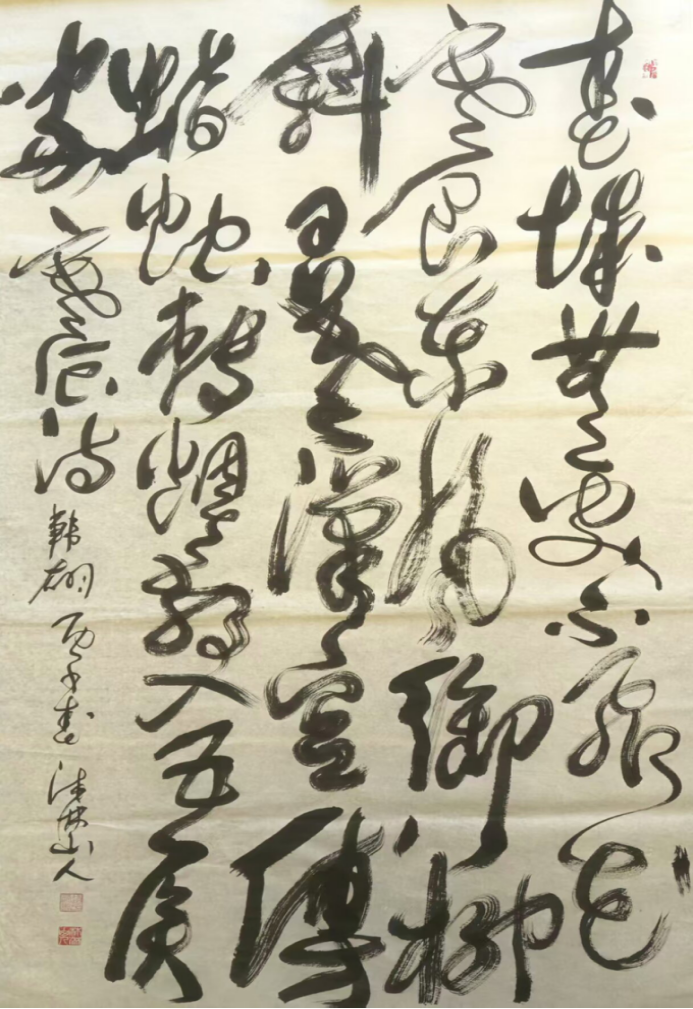 春城無處不飛花
寒食東風御柳
斜日暮漢宮傳
蜡烛輕烟散入五侯
家 寒食诗 韩翃 丙子春 山人